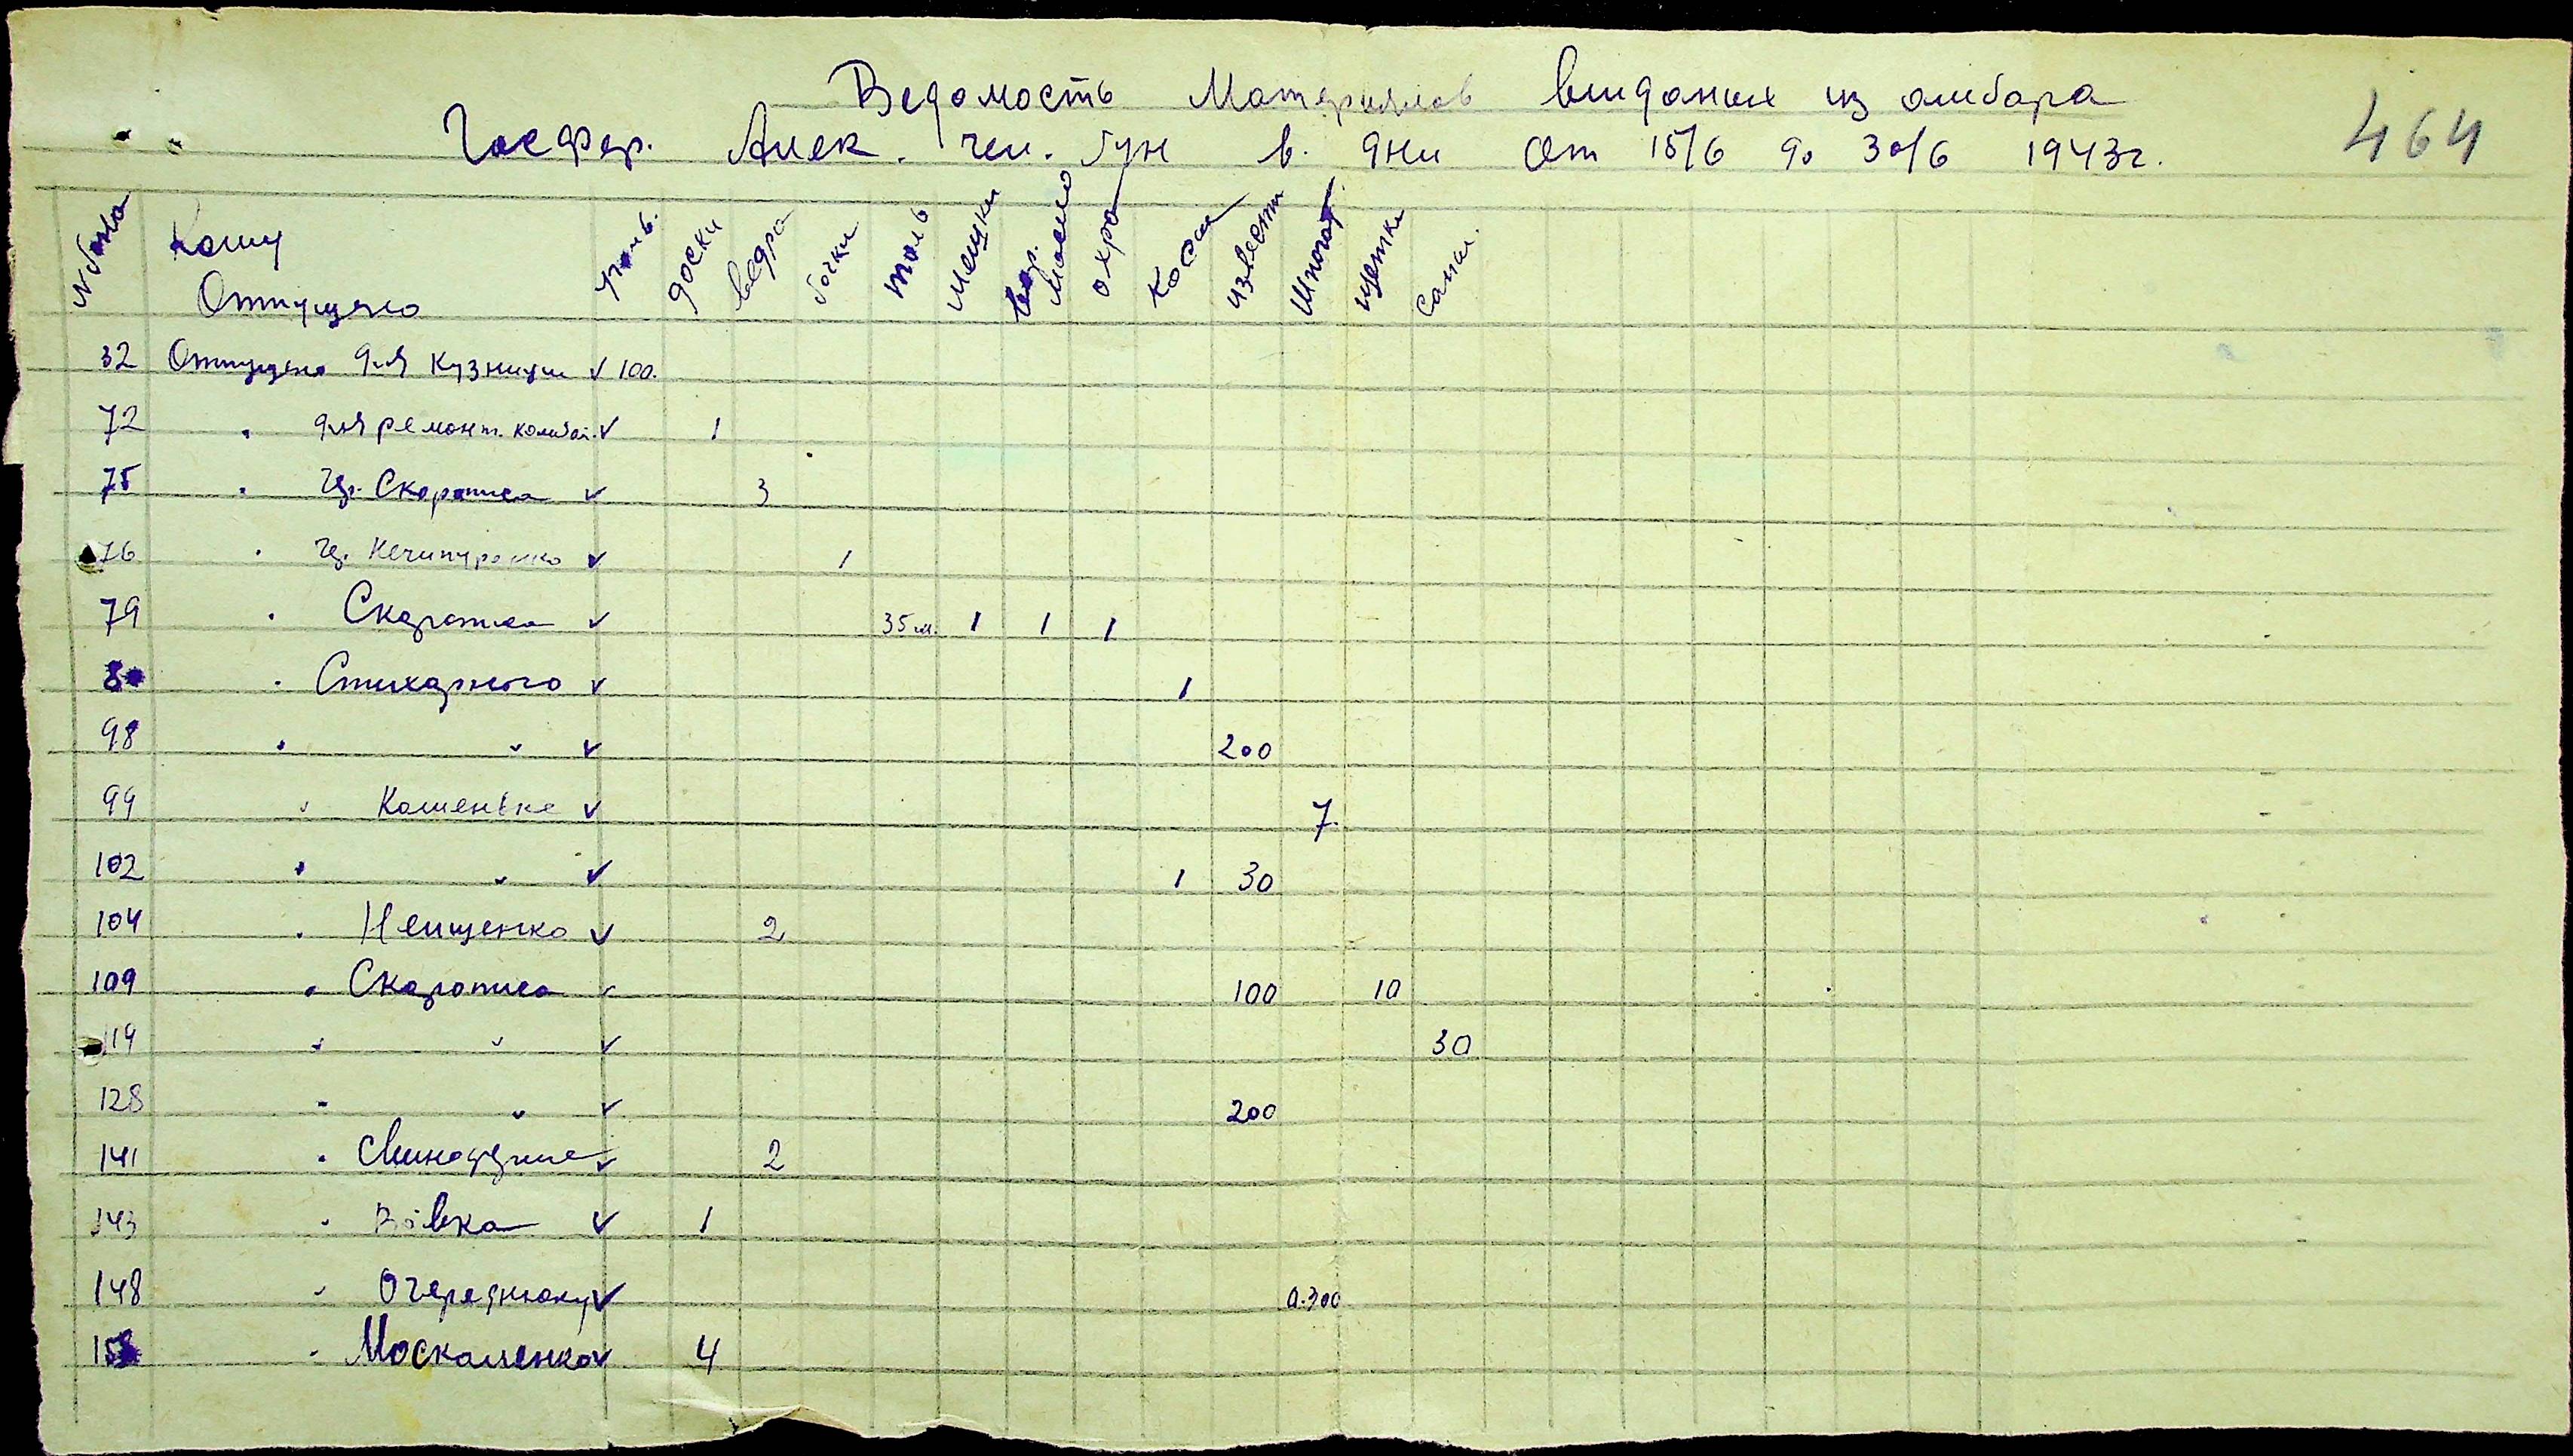 Ведомость Материялов виданих из амбара
464
Госфер. Алек. в. дни От 15/6 до 30/6 1943г.
№ бона Кому Отпущено уголь. доски ведра бочки толь мешки вар. масло охра Косы известь Шпогат. щетки Сапи.
32 Отпущено для Кузници ✓ 100.
72 " для ремонт. комбай. ✓ 1
75 " Гр. Скоропис ✓ 3
76 " Гр. Нечипуренко ✓ 1
79 " Скорописа ✓ 35 м. 1 1 1
" Стихарного ✓ 1
98 " " ✓ 200
99 " Коменівке ✓ 7.
102 " " ✓ 1 30
104 " Нещенко ✓ 2
109 " Скорописа ✓ 100 10
119 " " ✓ 30
128 " " ✓ 200
141 " Свиноферме ✓ 2
143 " Вовка ✓ 1
148 " Очереднюку ✓ 0.300
" Москаленко ✓ 4